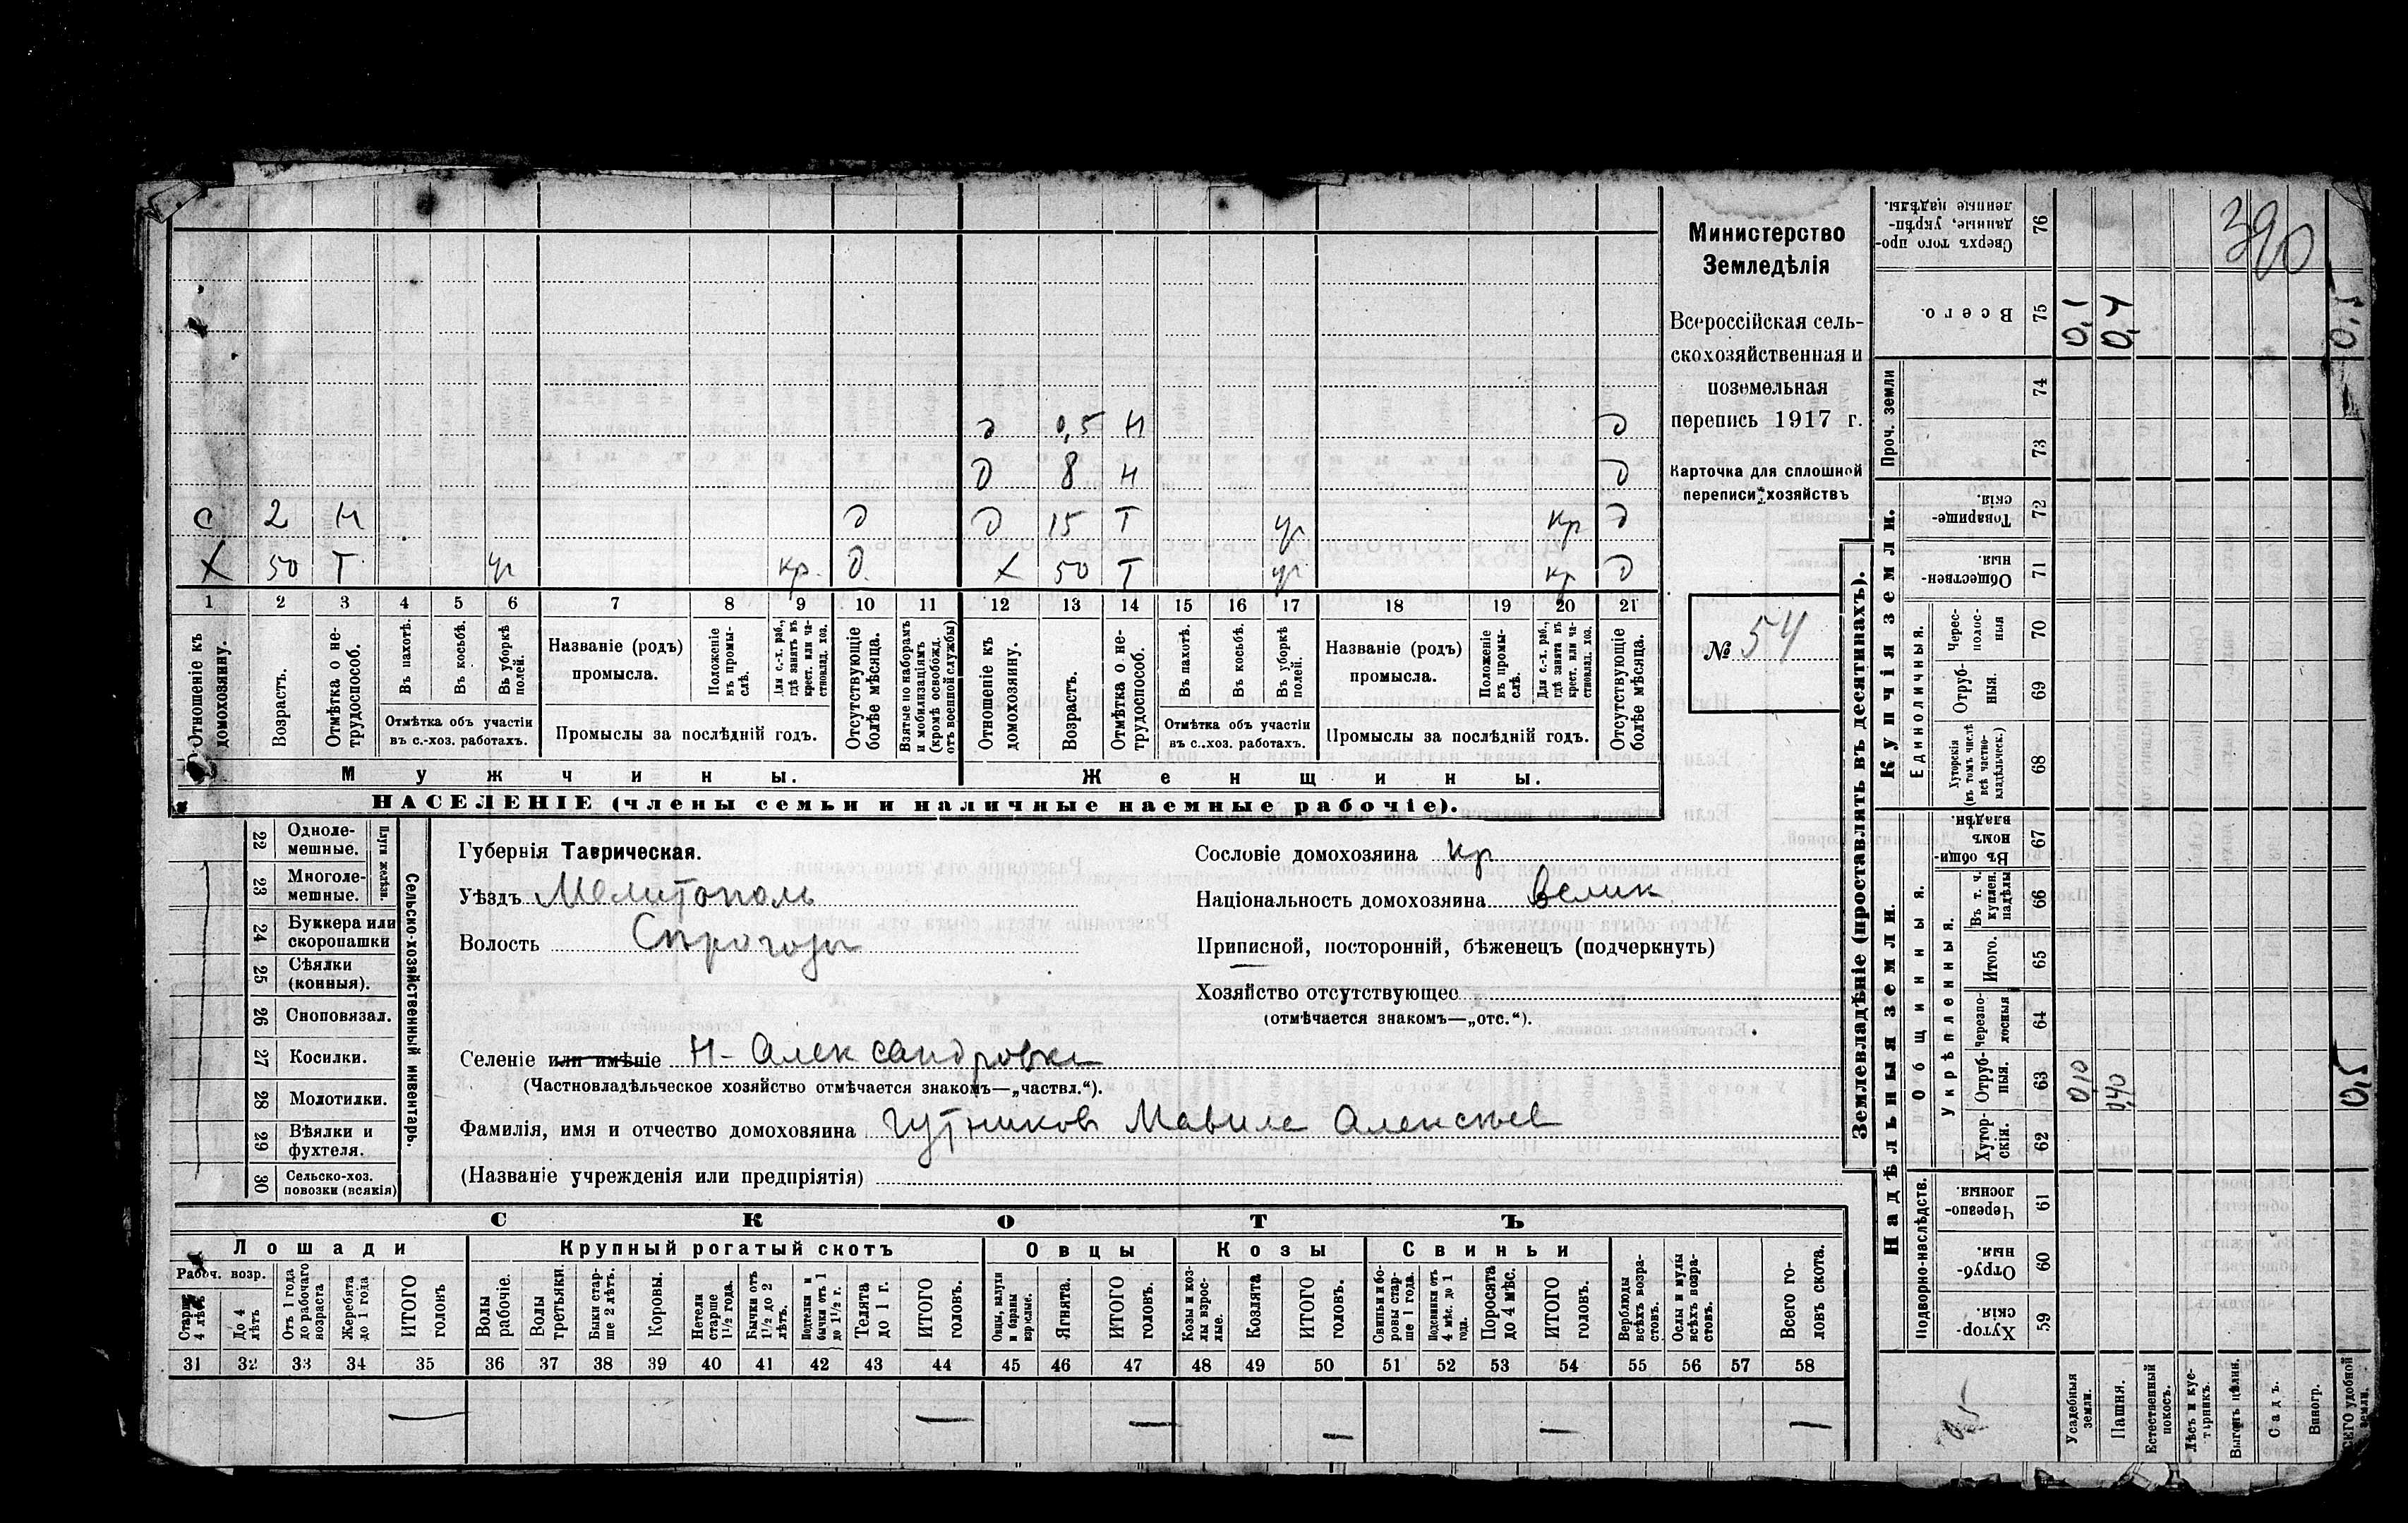 390
Министерство
Земледѣлія
Всероссійская сель-
скохозяйственная и
поземельная
перепись 1917 г.
Карточка для сплошной
переписи хозяйствъ
№ 54
д 0,5 н д
д 8 н д
с 2 н д д 15 т уг кр д
х 50 т уг кр. д. х 50 т уг кр д
1 2 3 4 5 6 7 8 9 10 11 12 13 14 15 16 17 18 19 20 21
Отношеніе къ домохозяину.
Возрастъ.
Отмѣтка о не-трудоспособ.
Въ пахотѣ.
Въ косьбѣ.
Въ уборкѣ полей.
Отмѣтка объ участіи
въ с.-хоз. работахъ.
Названіе (родъ)
промысла.
Положеніе въ промы-слѣ.
Для с.-х. раб., гдѣ занятъ въ крест. или ча-стновлад. хоз.
Промыслы за послѣдній годъ.
Отсутствующіе болѣе мѣсяца.
Взятые по наборамъ и мобилизаціямъ (кромѣ освобожд. отъ военной службы)
Отношеніе къ домохозяину.
Возрастъ.
Отмѣтка о не-трудоспособ.
Въ пахотѣ.
Въ косьбѣ.
Въ уборкѣ полей.
Отмѣтка объ участіи
въ с.-хоз. работахъ.
Названіе (родъ)
промысла.
Положеніе въ промы-слѣ.
Для с.-х. раб., гдѣ занята въ крест. или ча-стновлад. хоз.
Промыслы за послѣдній годъ.
Отсутствующіе болѣе мѣсяца.
Мужчины. Женщины.
НАСЕЛЕНІЕ (члены семьи и наличные наемные рабочіе).
Сельско-хозяйственный инвентарь.
Плуги желѣзн.
22 Одноле-мешные.
23 Многоле-мешные.
24 Буккера или скоропашки
25 Сѣялки (конныя).
26 Сноповязал.
27 Косилки.
28 Молотилки.
29 Вѣялки и фухтеля.
30 Сельско-хоз. повозки (всякія)
Губернія Таврическая.
Уѣздъ Мелитополь
Волость Сѣрогозы
Сословіе домохозяина кр
Національность домохозяина велик
Приписной, посторонній, бѣженецъ (подчеркнуть)
Хозяйство отсутствующее
(отмѣчается знакомъ—„отс.“).
Селеніе или имѣніе Н-Александровка
(Частновладѣльческое хозяйство отмѣчается знакомъ—„частвл.“).
Фамилія, имя и отчество домохозяина Гутников Алексѣев
(Названіе учрежденія или предпріятія)
СКОТЪ
Лошади Крупный рогатый скотъ Овцы Козы Свиньи
Рабоч. возр.
Старше 4 лѣтъ
До 4 лѣтъ
Отъ 1 года до рабочаго возраста
Жеребята до 1 года
ИТОГО головъ.
Волы рабочіе.
Волы третьяки.
Быки стар-ше 2 лѣтъ.
Коровы.
Нетели старше 1½ года.
Бычки отъ 1½ до 2 лѣтъ.
Подтелки и бычки отъ 1 до 1½ г.
Телята до 1 г.
ИТОГО головъ.
Овцы, валухи и бараны взрослые.
Ягнята.
ИТОГО головъ.
Козы и коз-лы взрос-лые.
Козлята
ИТОГО головъ.
Свиньи и бо-ровы стар-ше 1 года.
Подсвинки отъ 4 мѣс. до 1 года.
Поросята до 4 мѣс.
ИТОГО головъ.
Верблюды всѣхъ возра-стовъ.
Ослы и мулы всѣхъ возра-стовъ.
Всего го-ловъ скота.
31 32 33 34 35 36 37 38 39 40 41 42 43 44 45 46 47 48 49 50 51 52 53 54 55 56 57 58
— — — — — —
Землевладѣніе (проставлять въ десятинахъ).
Надѣльныя земли.
Купчія земли.
Проч. земли
Подворно-наслѣдств.
Общинныя.
Укрѣпленныя.
Единоличныя.
Хутор-скія. 59
Отруб-ныя. 60
Черезпо-лосныя. 61
Хутор-скія. 62
Отруб-ныя. 63 0,10 0,40 0,5
черезпо-лосныя 64
Итого. 65
Въ т. ч. куплен. надѣлы 66
Въ общин-номъ владѣн. 67
Хуторскія (въ томъ числѣ всѣ частно-владѣльческ.) 68
Отруб-ныя. 69
Черес-полос-ныя 70
Обществен-ныя. 71
Товарище-скія. 72
73
74
Всего. 75 0,1 0,4 0,5
Сверхъ того про-данные, укрѣп-ленные надѣлы. 76
Усадебныя земли.
Пашня.
Естественный покосъ.
Лѣсъ и ку-старникъ.
Выгонъ цѣлин.
Садъ.
Виногр.
ВСЕГО удобной земли.